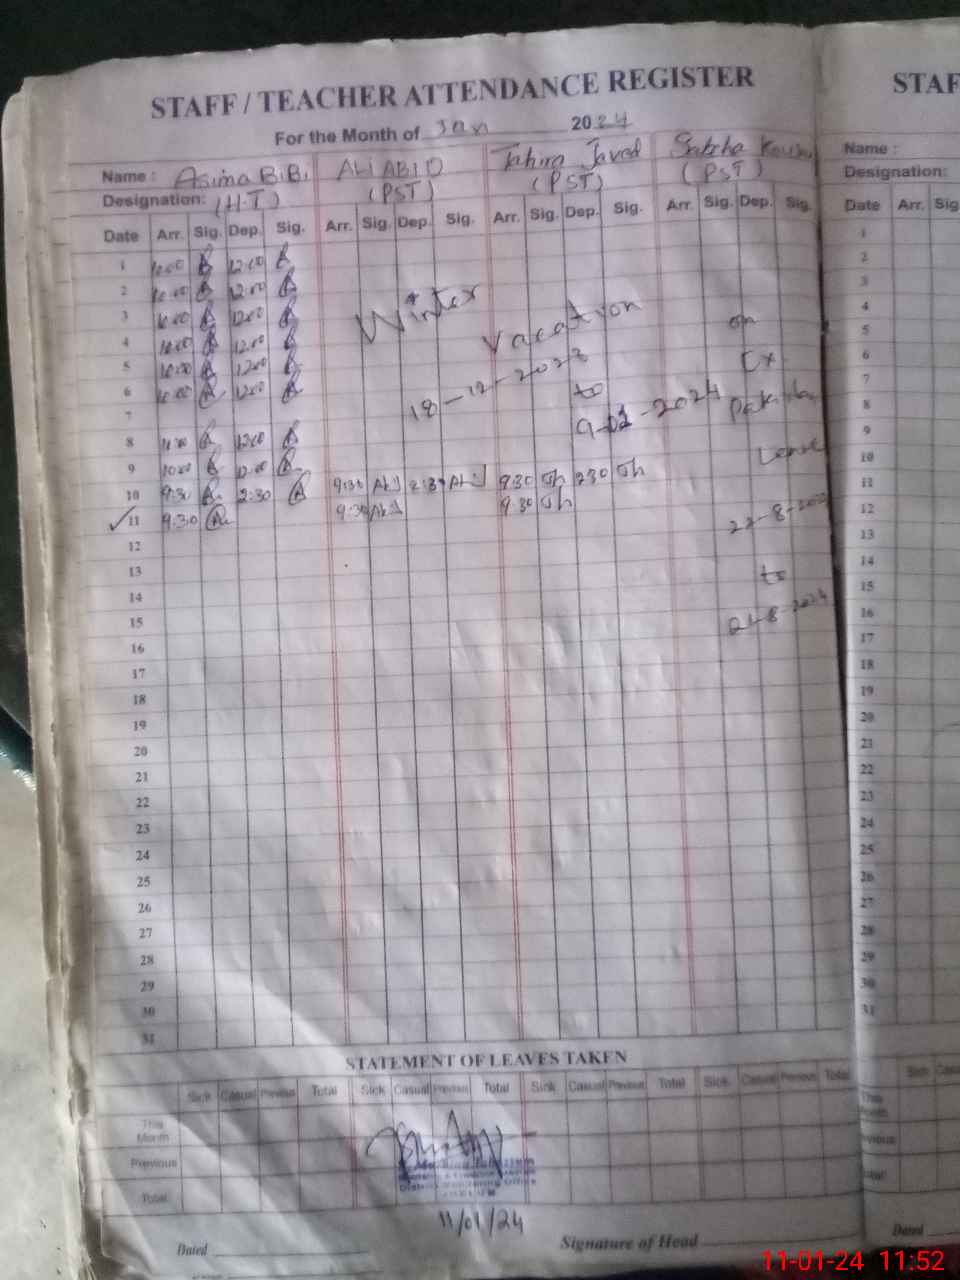 STAFF / TEACHER ATTENDANCE REGISTER
For the Month of Jan 2024
Name : Asima BiBi ALI ABID Tahira Javed
Designation: (H.T) (PST) (PST) (PST)
Date Arr. Sig. Dep. Sig. Arr. Sig. Dep. Sig. Arr. Sig. Dep. Sig. Arr. Sig. Dep. Sig.
1 10:00 12:00
2 10:00 12:00
3 10:00 12:00
4 10:00 12:00
5 10:00 12:00
6 10:00 12:00
7
8 10:00 12:00
9 10:00 12:00
10 9:30 2:30 9:30 2:30 9:30 2:30
11 9:30 9:30 9:30
12
13
14
15
16
17
18
19
20
21
22
23
24
25
26
27
28
29
30
31
Winter
Vacation
18-12-2023
to
9-01-2024
on
Ex
Leave
22-8-
to
21-8-2024
STATEMENT OF LEAVES TAKEN
Sick Casual Previous Total Sick Casual Previous Total Sick Casual Previous Total Sick Casual Previous Total
This Month
Previous
Total
District Monitoring Officer
11/01/24
Dated Signature of Head
STAF
Name :
Designation:
Date Arr. Sig
1
2
3
4
5
6
7
8
9
10
11
12
13
14
15
16
17
18
19
20
21
22
23
24
25
26
27
28
29
30
31
Sick Casu
This
Month
vious
otal
Dated
11-01-24 11:52